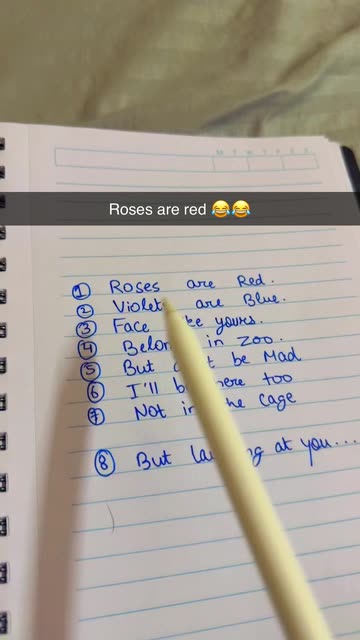 M T W T F S S
Roses are red 😂😂
① Roses are Red.
② Violets are Blue.
③ Face yours.
④ Belon in Zoo.
⑤ But be Mad
⑥ I'll too
⑦ Not in the Cage
⑧ But at you....